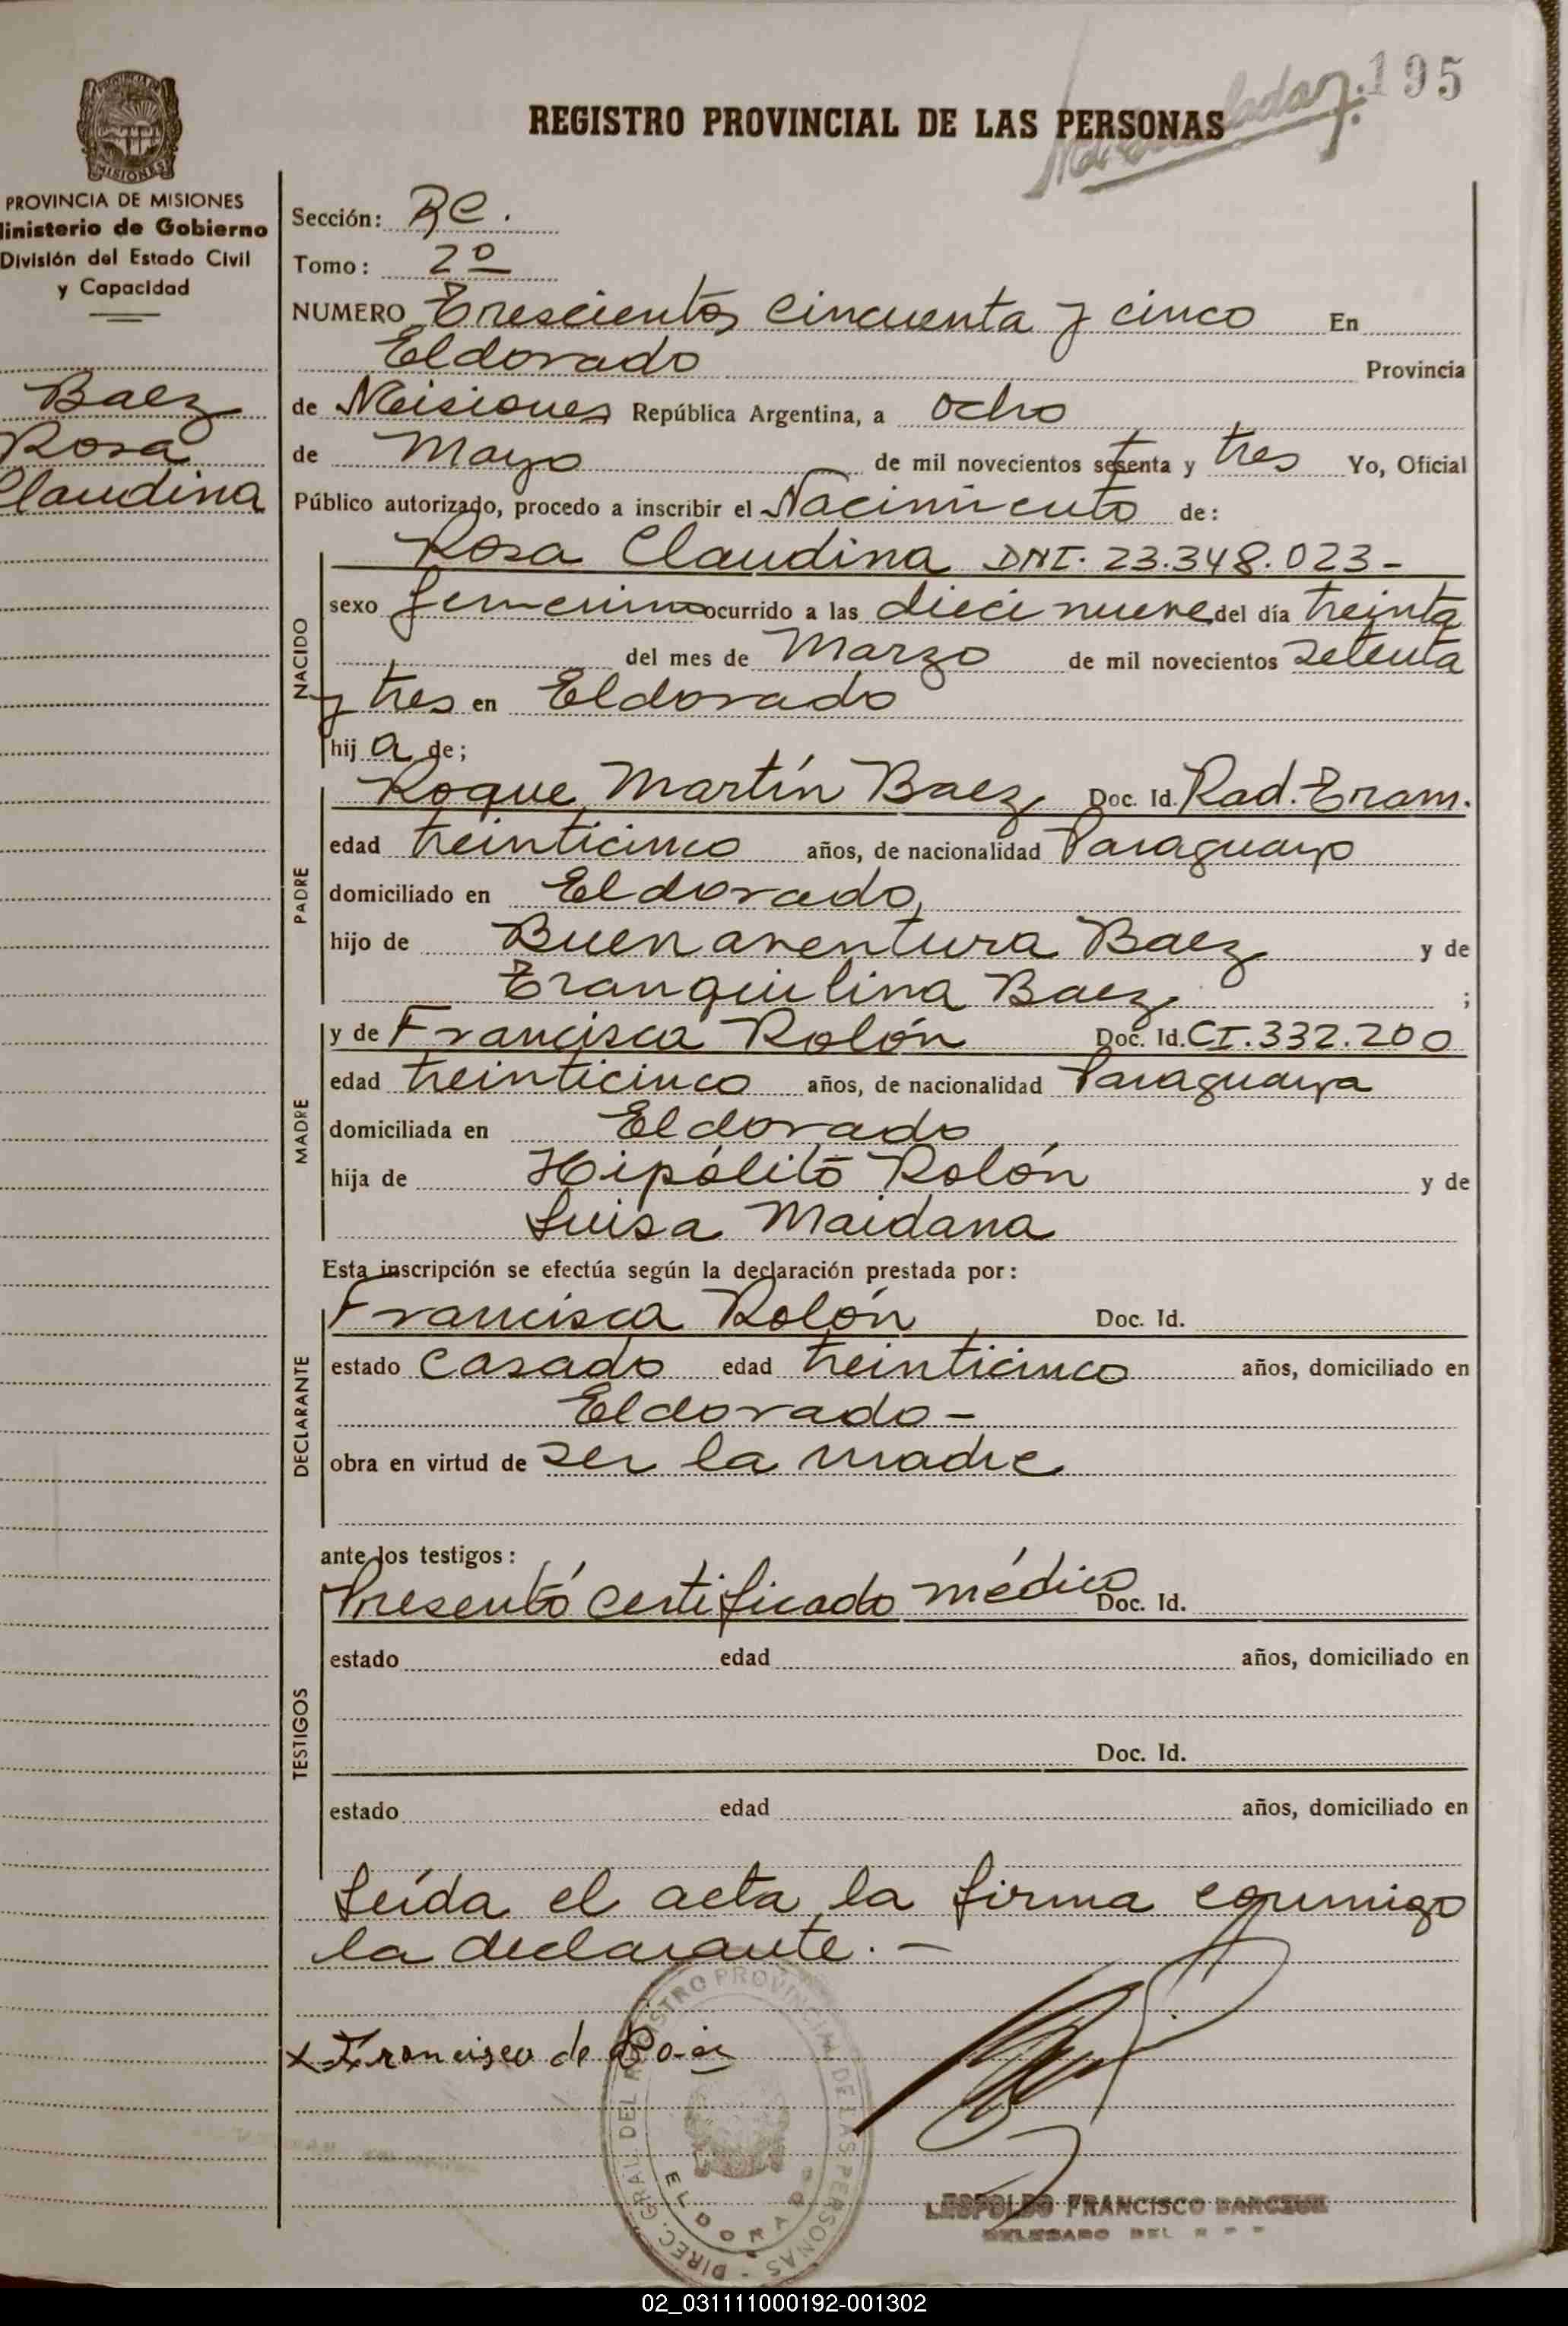 195
REGISTRO PROVINCIAL DE LAS PERSONAS
MISIONES
PROVINCIA DE MISIONES
Ministerio de Gobierno
División del Estado Civil
y Capacidad
Baez
Rosa
Claudina
Sección: RC.
Tomo: 2º
NUMERO Trescientos cincuenta y cinco En
Eldorado Provincia
de Misiones República Argentina, a ocho
de Mayo de mil novecientos setenta y tres Yo, Oficial
Público autorizado, procedo a inscribir el Nacimiento de:
NACIDO
Rosa Claudina DNI. 23.348.023-
sexo femenino ocurrido a las dieci nueve del día treinta
del mes de Marzo de mil novecientos setenta
y tres en Eldorado
hij a de;
PADRE
Roque Martín Baez Doc. Id. Rad. Tram.
edad treinticinco años, de nacionalidad Paraguayo
domiciliado en Eldorado
hijo de Buenaventura Baez y de
Tranquilina Baez ;
MADRE
y de Francisca Rolón Doc. Id. CI.332.200
edad treinticinco años, de nacionalidad Paraguaya
domiciliada en Eldorado
hija de Hipólito Rolón y de
Luisa Maidana
Esta inscripción se efectúa según la declaración prestada por:
DECLARANTE
Francisca Rolón Doc. Id.
estado casado edad treinticinco años, domiciliado en
Eldorado-
obra en virtud de ser la madre
ante los testigos:
TESTIGOS
Presentó certificado médico Doc. Id.
estado edad años, domiciliado en
Doc. Id.
estado edad años, domiciliado en
Leída el acta la firma conmigo
la declarante.-
x Francisca de
DIREC. GRAL. DEL REGISTRO PROVINCIAL DE LAS PERSONAS
ELDORADO
LEOPOLDO FRANCISCO
DELEGADO DEL
02_031111000192-001302